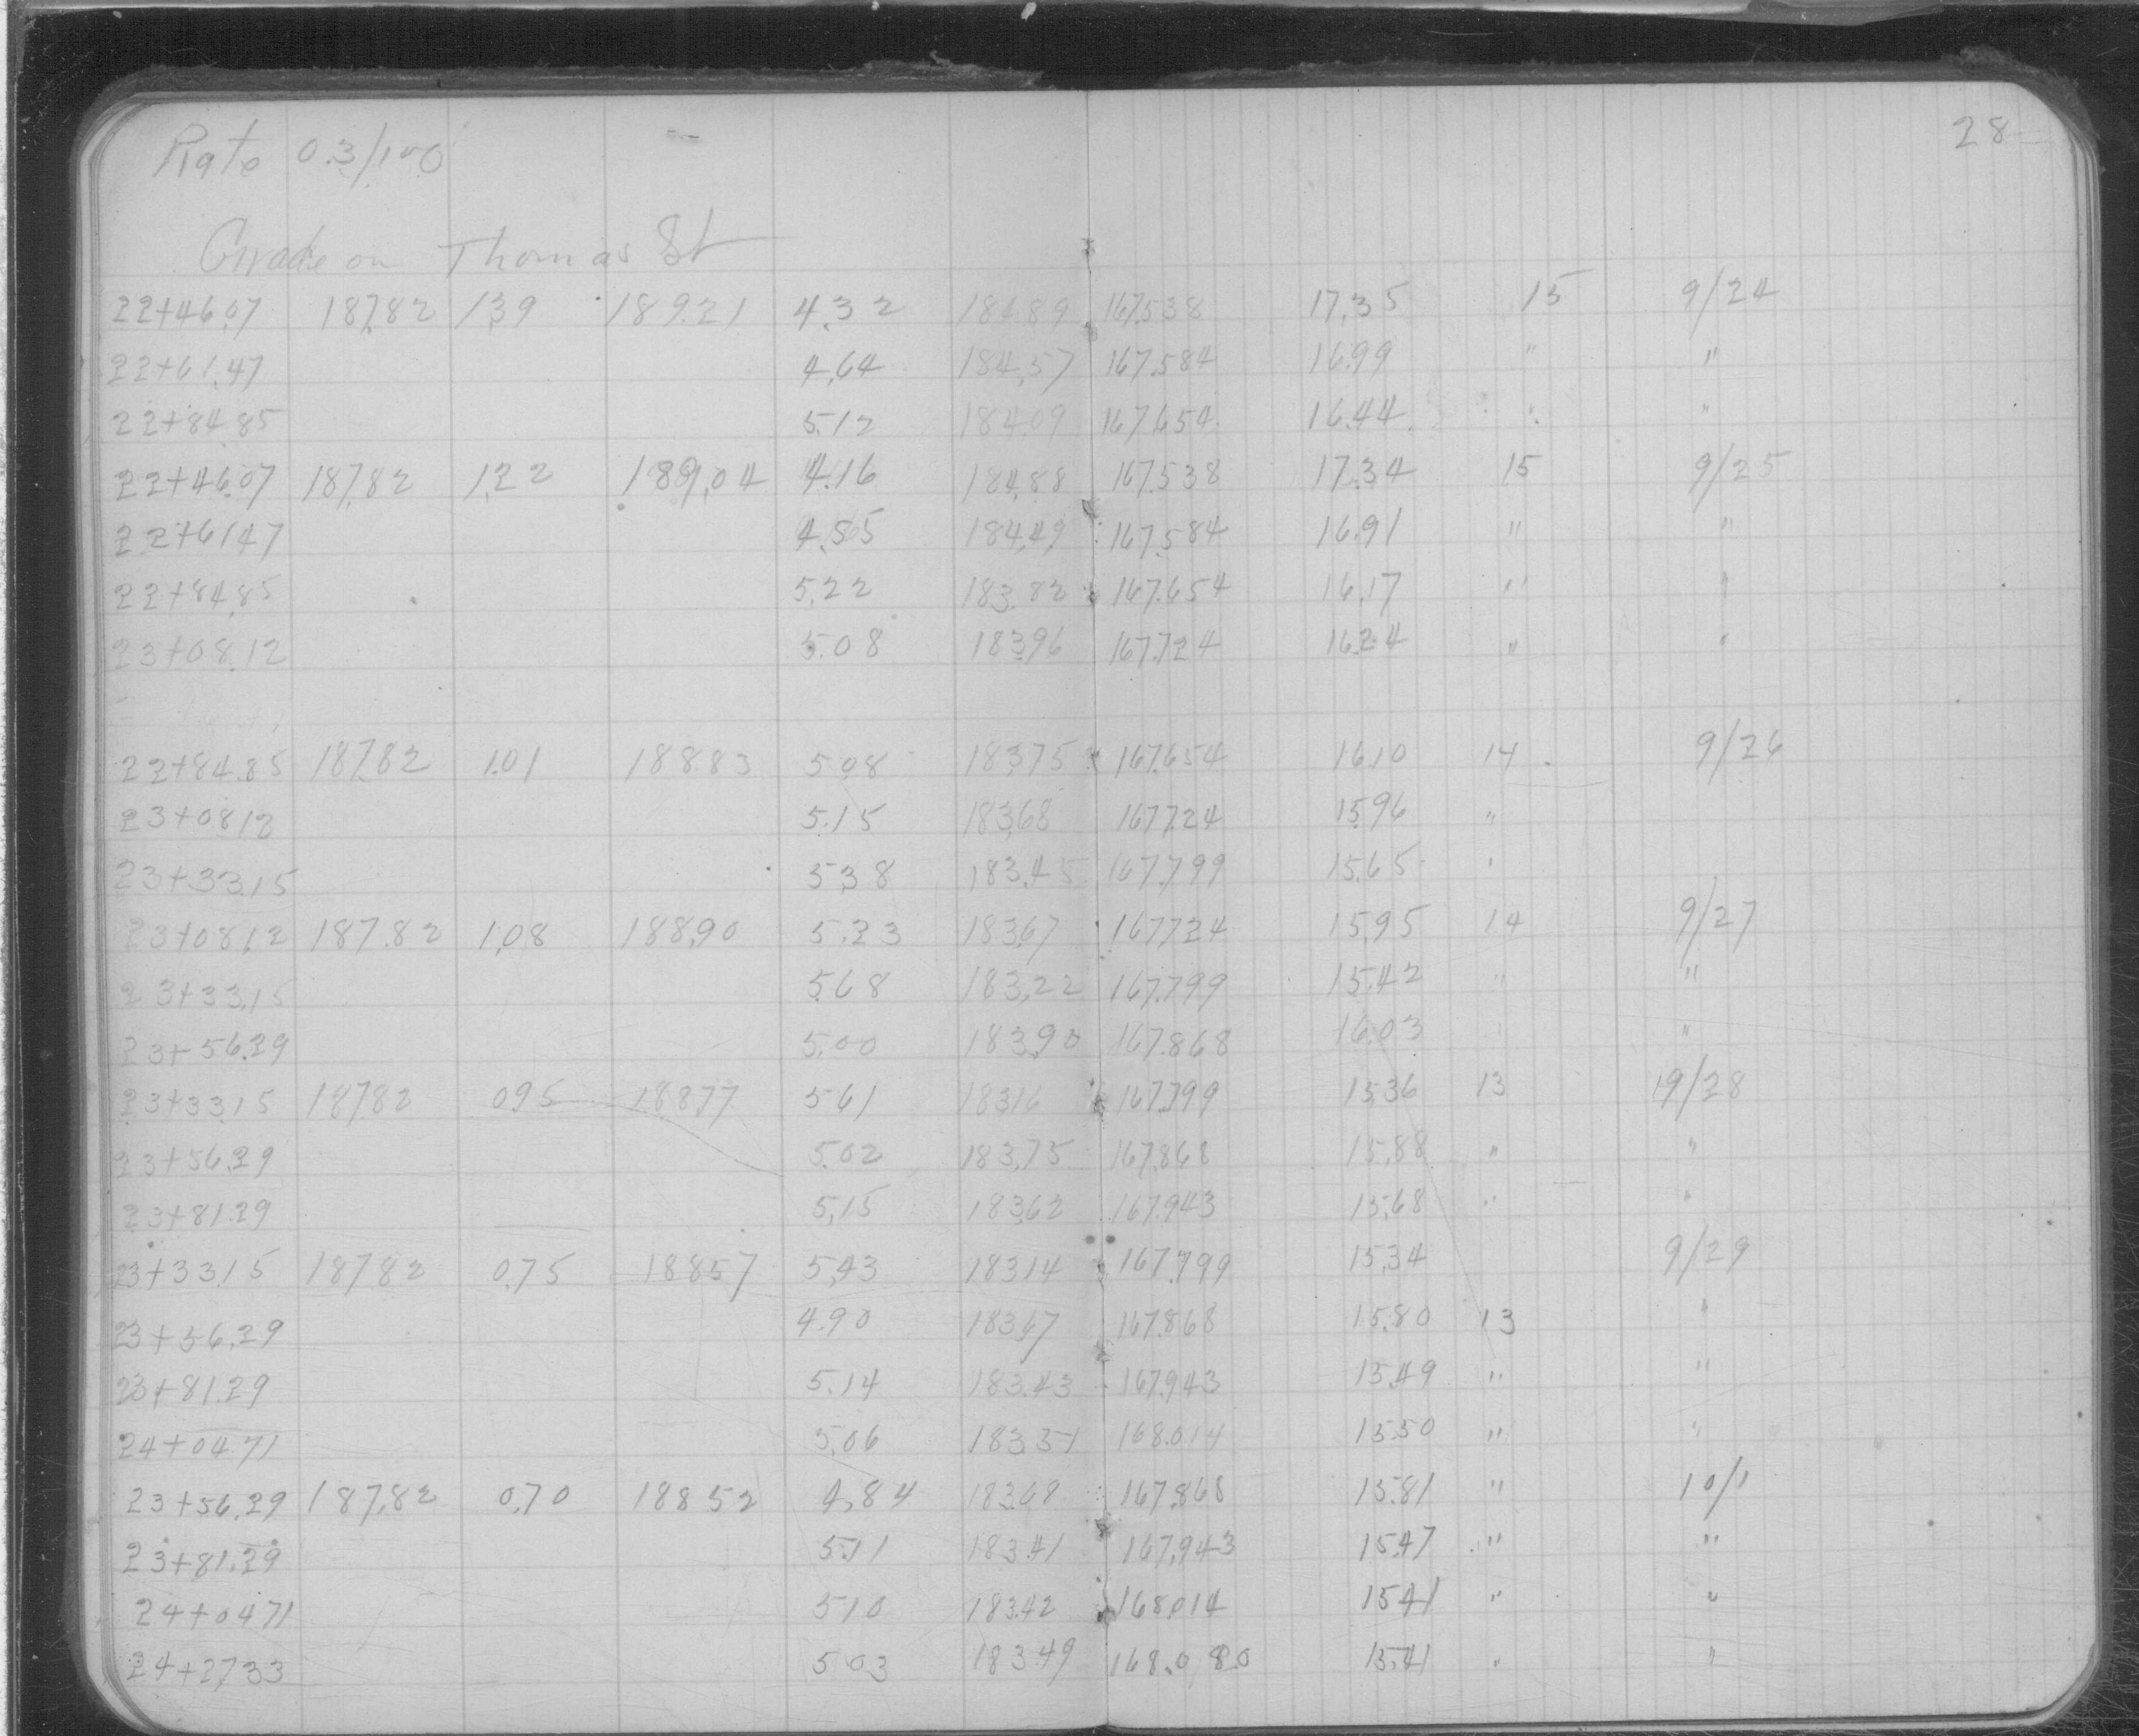 28
Rate 0.3/100
Grade on Thomas St
22+46.07 187.82 1.39 189.21 4.32 184.89 167.538 17.35 15 9/24
22+61.47 4.64 184.57 167.584 16.99 " "
22+84.85 5.12 184.09 167.654 16.44 " "
22+46.07 187.82 1.22 189.04 4.16 184.88 167.538 17.34 15 9/25
22+61.47 4.55 184.49 167.584 16.91 " "
22+84.85 5.22 183.82 167.654 16.17 " "
23+08.12 5.08 183.96 167.724 16.24 " "
22+84.85 187.82 1.01 188.83 5.08 183.75 167.654 16.10 14 9/26
23+08.12 5.15 183.68 167.724 15.96 "
23+33.15 5.38 183.45 167.799 15.65 "
23+08.12 187.82 1.08 188.90 5.23 183.67 167.724 15.95 14 9/27
23+33.15 5.68 183.22 167.799 15.42 " "
23+56.29 5.00 183.90 167.868 16.03 "
23+33.15 187.82 0.95 188.77 5.61 183.16 167.799 15.36 13 9/28
23+56.29 5.02 183.75 167.868 15.88 " "
23+81.29 5.15 183.62 167.943 15.68 " "
23+33.15 187.82 0.75 188.57 5.43 183.14 167.799 15.34 9/29
23+56.29 4.90 183.67 167.868 15.80 13 "
23+81.29 5.14 183.43 167.943 15.49 " "
24+04.71 5.06 183.51 168.014 15.50 " "
23+56.29 187.82 0.70 188.52 4.84 183.68 167.868 15.81 " 10/1
23+81.29 5.11 183.41 167.943 15.47 " "
24+04.71 5.10 183.42 168.014 15.41 " "
24+27.33 5.03 183.49 168.080 15.41 " "